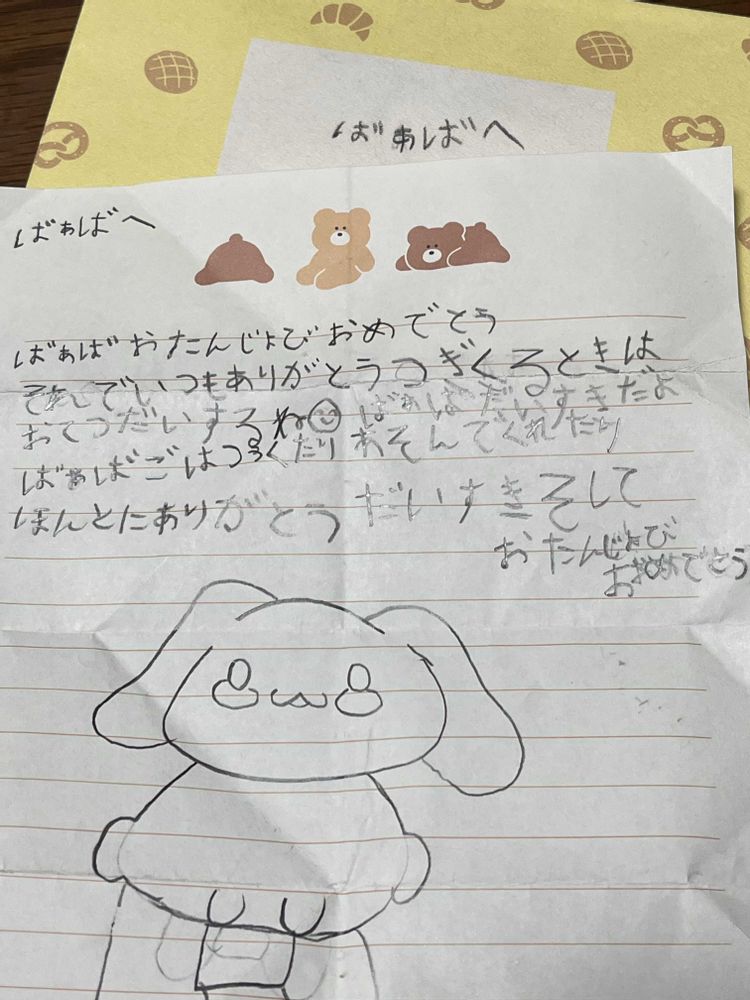 ばぁばへ
ばぁばへ
ばぁばおたんじょびおめでとう
そしていつもありがとうつぎくるときは
おてつだいするね ばぁばだいすきだよ
ばぁばごはつくたりあそんでくれたり
ほんとにありがとうだいすきそして
おたんじょび
おめでとう